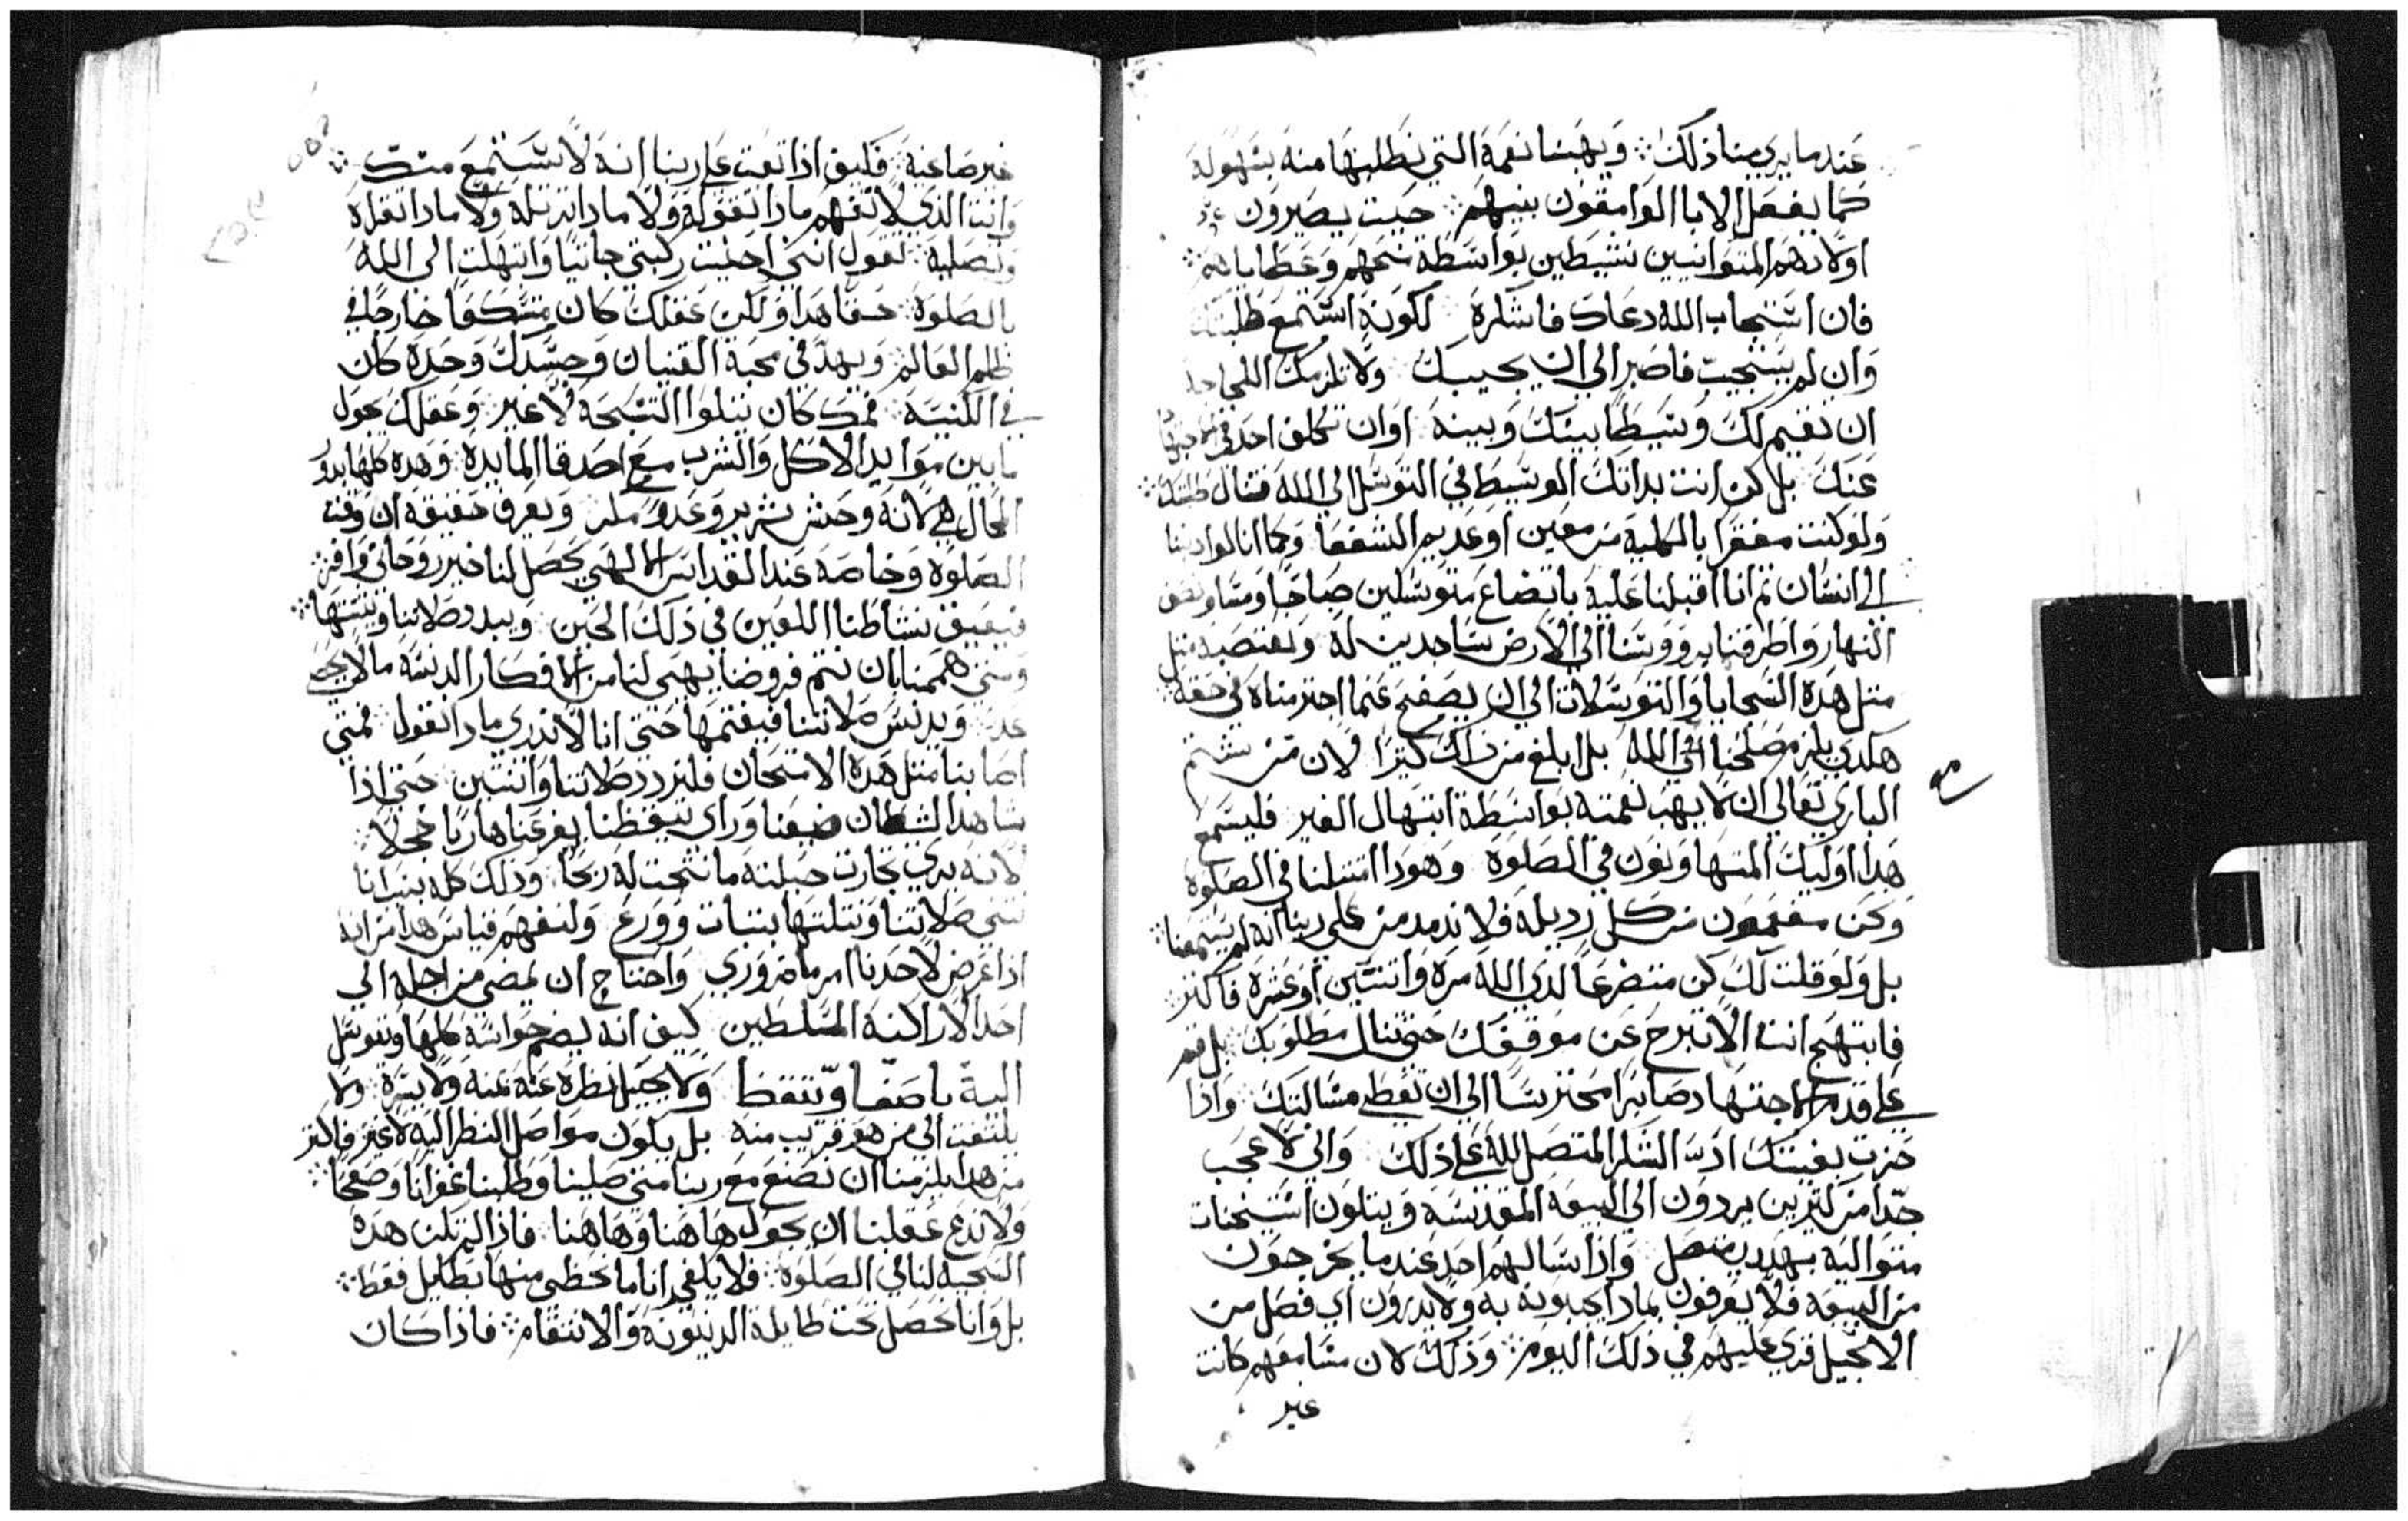 عندما يري منا ذلك ؞ ويهبنا نعمة التي نطلبها منه بسهولة
كما يفعل الابا الوامقون بنيهم ؞ حيت يصيرون
اولادهم المتوانيين نشيطين بواسطة شحهم وعطاياهم ؞
فان استجاب الله دعاك فاشكره لكونه استمع طلبتك
وان لم يستجيب فاصبر الي ان يجيبك ولا تلزمك اللجاجه
ان تقيم لك وسيطا بينك وبينه اوان تكلف احد في
عنك بل كن انت بداتك الوسيط في التوسل الي الله فتنال طلبتك ؞
ولو كنت مفقرا بالكلية من معين او عديم الشفعا وكما انا لو ادينا
الي انسان تم انا اقبلنا عليه باتضاع متوسلين صباحا ومسا ونصف
النهار واطرقنا برووسنا الي الارض ساجدين له ونغتصبه متل
متل هده السجايا والتوسلات الي ان يصفح عنما اجترمناه في حقه ؞
هكدي يلزم صلحنا الي الله بل ابلغ من داك كتيرا لان من شيم
الباري تعالي ان لا يهب نعمته بواسطة ابتهال الغير فليسمع
هدا اوليك المتهاونون في الصلوة وهودا امتتلنا في الصلوة
ونحن مفعمون من كل رديله فلا ندمدمن علي ربنا انه لم يسمعنا ؞
بل ولو قلت لك كن متضرعا لدي الله مرة واتنتين او عشرة فاكتر ؞
فابتهج انت الا تبرح عن موقفك حتي تنال مطلوبك بل قم
علي قدم الاجتهاد صابرا محترسا الي ان تعطي مسالتك واذا
حزت بغيتك ادي الشكر المتصل لله علي ذلك واني لاعجب
جدا من كتيرين يردون الي البيعة المقدسة ويتلون استيخنات
متواليه بهديد متصل واذا سالهم احد عندما يخرجون
من البيعه فلا يعرفون بمادا يجيبونه به ولا يدرون اي فصل من
الانجيل قري عليهم في ذلك اليوم ؞ وذلك لان مسامعهم كانت
غير
غير صاغية فكيف اذا تعتب علي ربنا انه لا يستمع منك ؞
وانت الذي لا تفهم مادا تقوله ولا مادا ترتله ولا مادا تقراه
وتصليه تقول انني احنيت ركبتي جاتيا وابتهلت الي الله
بالصلوة حقا هدا ولكن عقلك كان متسكعا خارجا في
ظلم العالم ويهد في محبة القنيان وجسدك وحده كان
في الكنيسة فمك كان يتلوا التسبحة لا غير وعقلك يجول
ما بين موايد الاكل والشرب مع اصدقا المايده وهده كلها بدو
المحال هي لانه وحش شرير وعدو مكر ويعرف حقيقة ان وقت
الصلوة وخاصه عند القداس الالهي يحصل لنا خير روحاني وافر ؞
فيعيق نشاطنا اللعين في ذلك الحين ويبدد صلاتنا ويشتتها ؞
ومتي هممنا بان نتم فروضا يهيي لنا من الافكار الدنسة ما لا يحصي
عدد ويدنس صلاتنا فيفتمها حتي انا لا ندري مادا نقول فمتي
اصابنا متل هده الامتحان فلنردد صلاتنا واتنتين حتي اذا
شاهد الشيطان ضعفنا وراي تيقظنا يفر عنا هاربا خجلا ؞
لانه يري تجارت حيلته ما نتجت له ربحا وذلك كله بترانا
نتني صلاتنا ونتلتها بتبات وورع ولنفهم قياس هدا من انه
اذا عرض لاحدنا امر ما ضروري واحتاج ان يمضي من اجله الي
احد الاراكنة المسلطين كيف انه يضم حواسه كلها ويتوسل
اليه باصغا وتيقظ ولا يحيل نظره عنه يمنه ولا يسرة ولا
يلتفت الي من هو قريب منه بل يكون مواصل النظر اليه لا غير فاكتر
من هدا يلزمنا ان نصنع مع ربنا متي صلينا وطلبنا غفرانا وصفحا ؞
ولا ندع عقلنا ان يجول هاهنا وهاهنا فاذا لم تكن هده
السجيه لنا في الصلوة فلا يكفي انا ما نحظي منها بطايل فقط ؞
بل وانا نحصل تحت طايلة الدينونة والانتقام ؞ فاذا كان